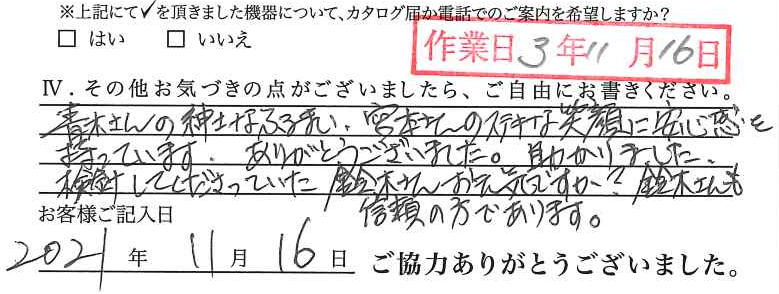 ※上記にて✓を頂きました機器について、カタログ届か電話でのご案内を希望しますか？
□ はい □ いいえ
作業日 3年11月16日
Ⅳ．その他お気づきの点がございましたら、ご自由にお書きください。
青木さんの紳士なふるまい、宮本さんのステキな笑顔に安心感を
持っています。ありがとうございました。助かりました。
検針してくださっていた 鈴木さんお元気ですか？鈴木さんも
信頼の方であります。
お客様ご記入日
2021年11月16日 ご協力ありがとうございました。